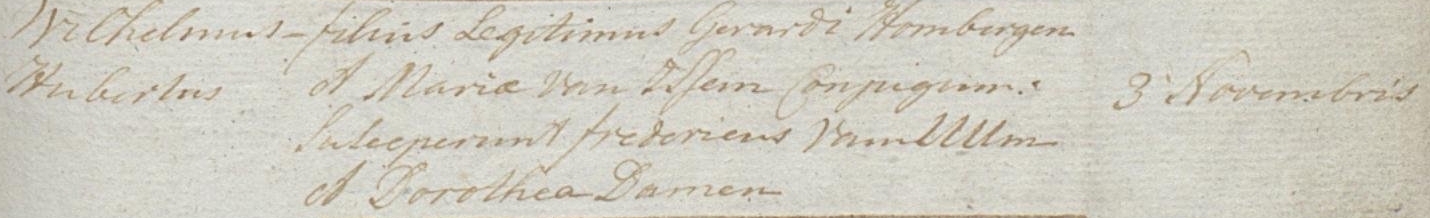 Wilhelmus – filius Legitimus Gerardi Hombergen
Hubertus et Mariæ Van Issem Conjugum: 3 Novembris
Susceperunt fredericus Van Ulm
et Dorothea Damen